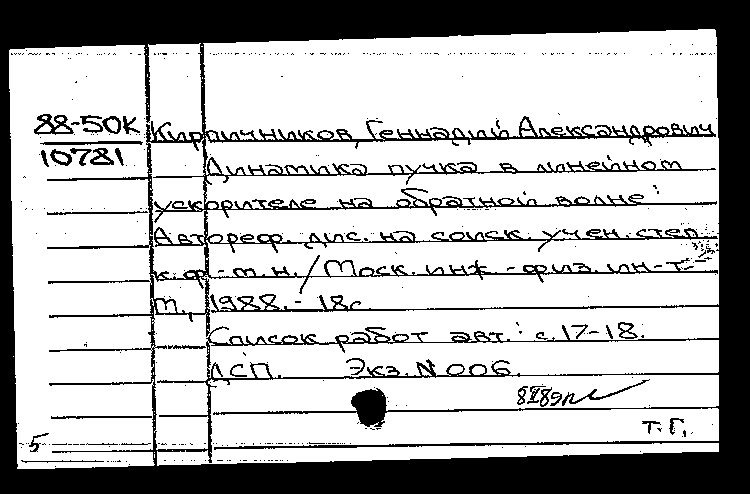 88-50К
10781
Кирпичников, Геннадий Александрович
Динамика пучка в линейном
ускорителе на обратной волне:
Автореф. дис. на соиск. учен. степ.
к.ф.-м.н. / Моск. инж.-физ. ин-т.-
М., 1988.- 18с.
Список работ авт.: с.17-18.
ДСП. Экз.N006.
Т.Г.
5